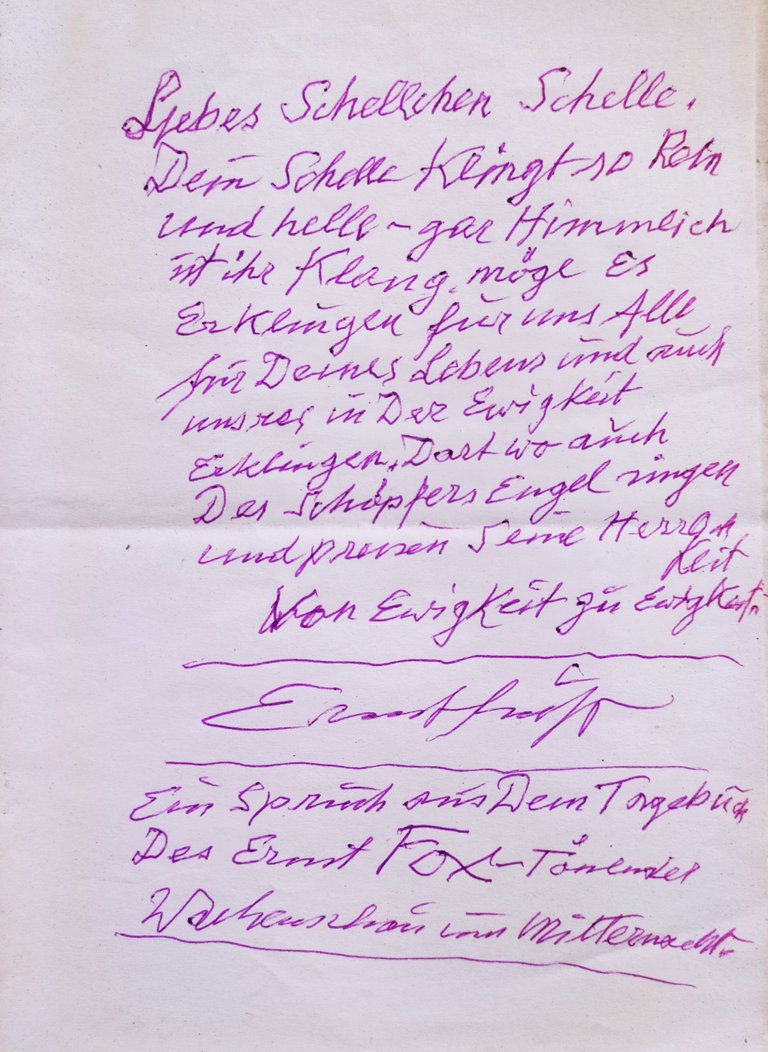 Liebes Schellchen Schelle.
Dein Schelle Klingt so Rein
und helle – gar Himmlich
ist ihr Klang, möge Es
Erklingen für uns Alle
für Deines Lebens und auch
unsres in Der Ewigkeit
Erklingen. Dort wo auch
Des Schöpfers Engel singen
und preisen Seine Herrlich
Keit
Von Ewigkeit zu Ewigkeit.
Ernst
Ein Spruch aus Dem Tagebuch
Des Ernst Fox – Tönender
Wochenschau um Mitternacht.